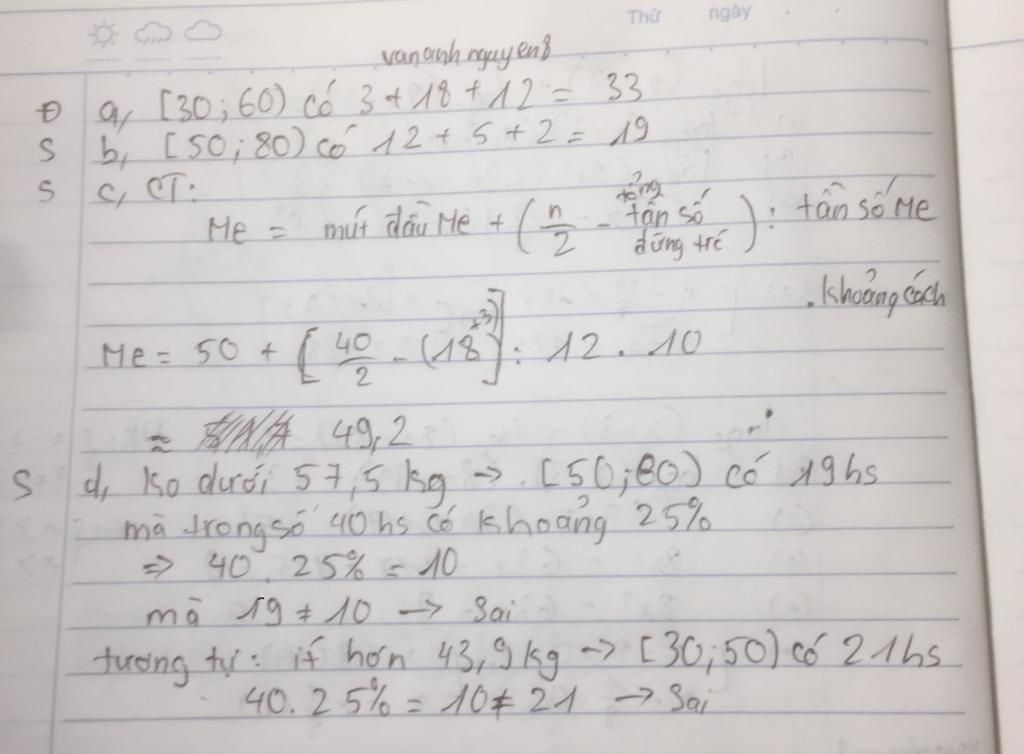 Thứ ngày
vananhnguyen8
Đ a, [30; 60) có 3 + 18 + 12 = 33
S b, [50; 80) có 12 + 5 + 2 = 19
S c, CT:
Me = mút đầu Me + (n/2 - tổng tần số đứng trc) : tần số Me
. khoảng cách
Me = 50 + [40/2 - (18+3)] : 12 . 10
≈ 49,2
S d, ko dưới 57,5 kg → [50; 80) có 19 hs
mà trong số 40 hs có khoảng 25%
⇒ 40 . 25% = 10
mà 19 ≠ 10 → Sai
tương tự: ít hơn 43,9 kg → [30; 50) có 21 hs
40. 25% = 10 ≠ 21 → Sai